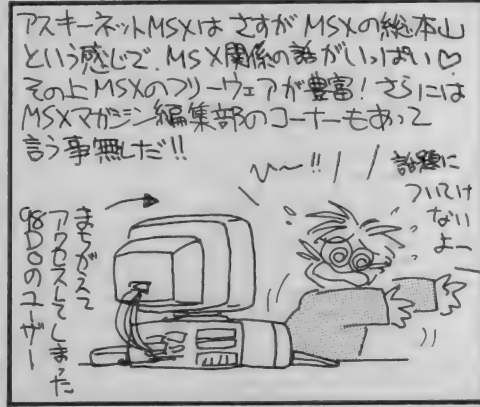 アスキーネットMSXは さすがMSXの総本山
という感じで、MSX関係の話がいっぱい♡
その上MSXのフリーウェアが豊富!さらには
MSXマガジン編集部のコーナーもあって
言う事無しだ!!
!!
話題に
ついてけ
ないよー
まちがえて
アクセスしてしまった
98DOのユーザー